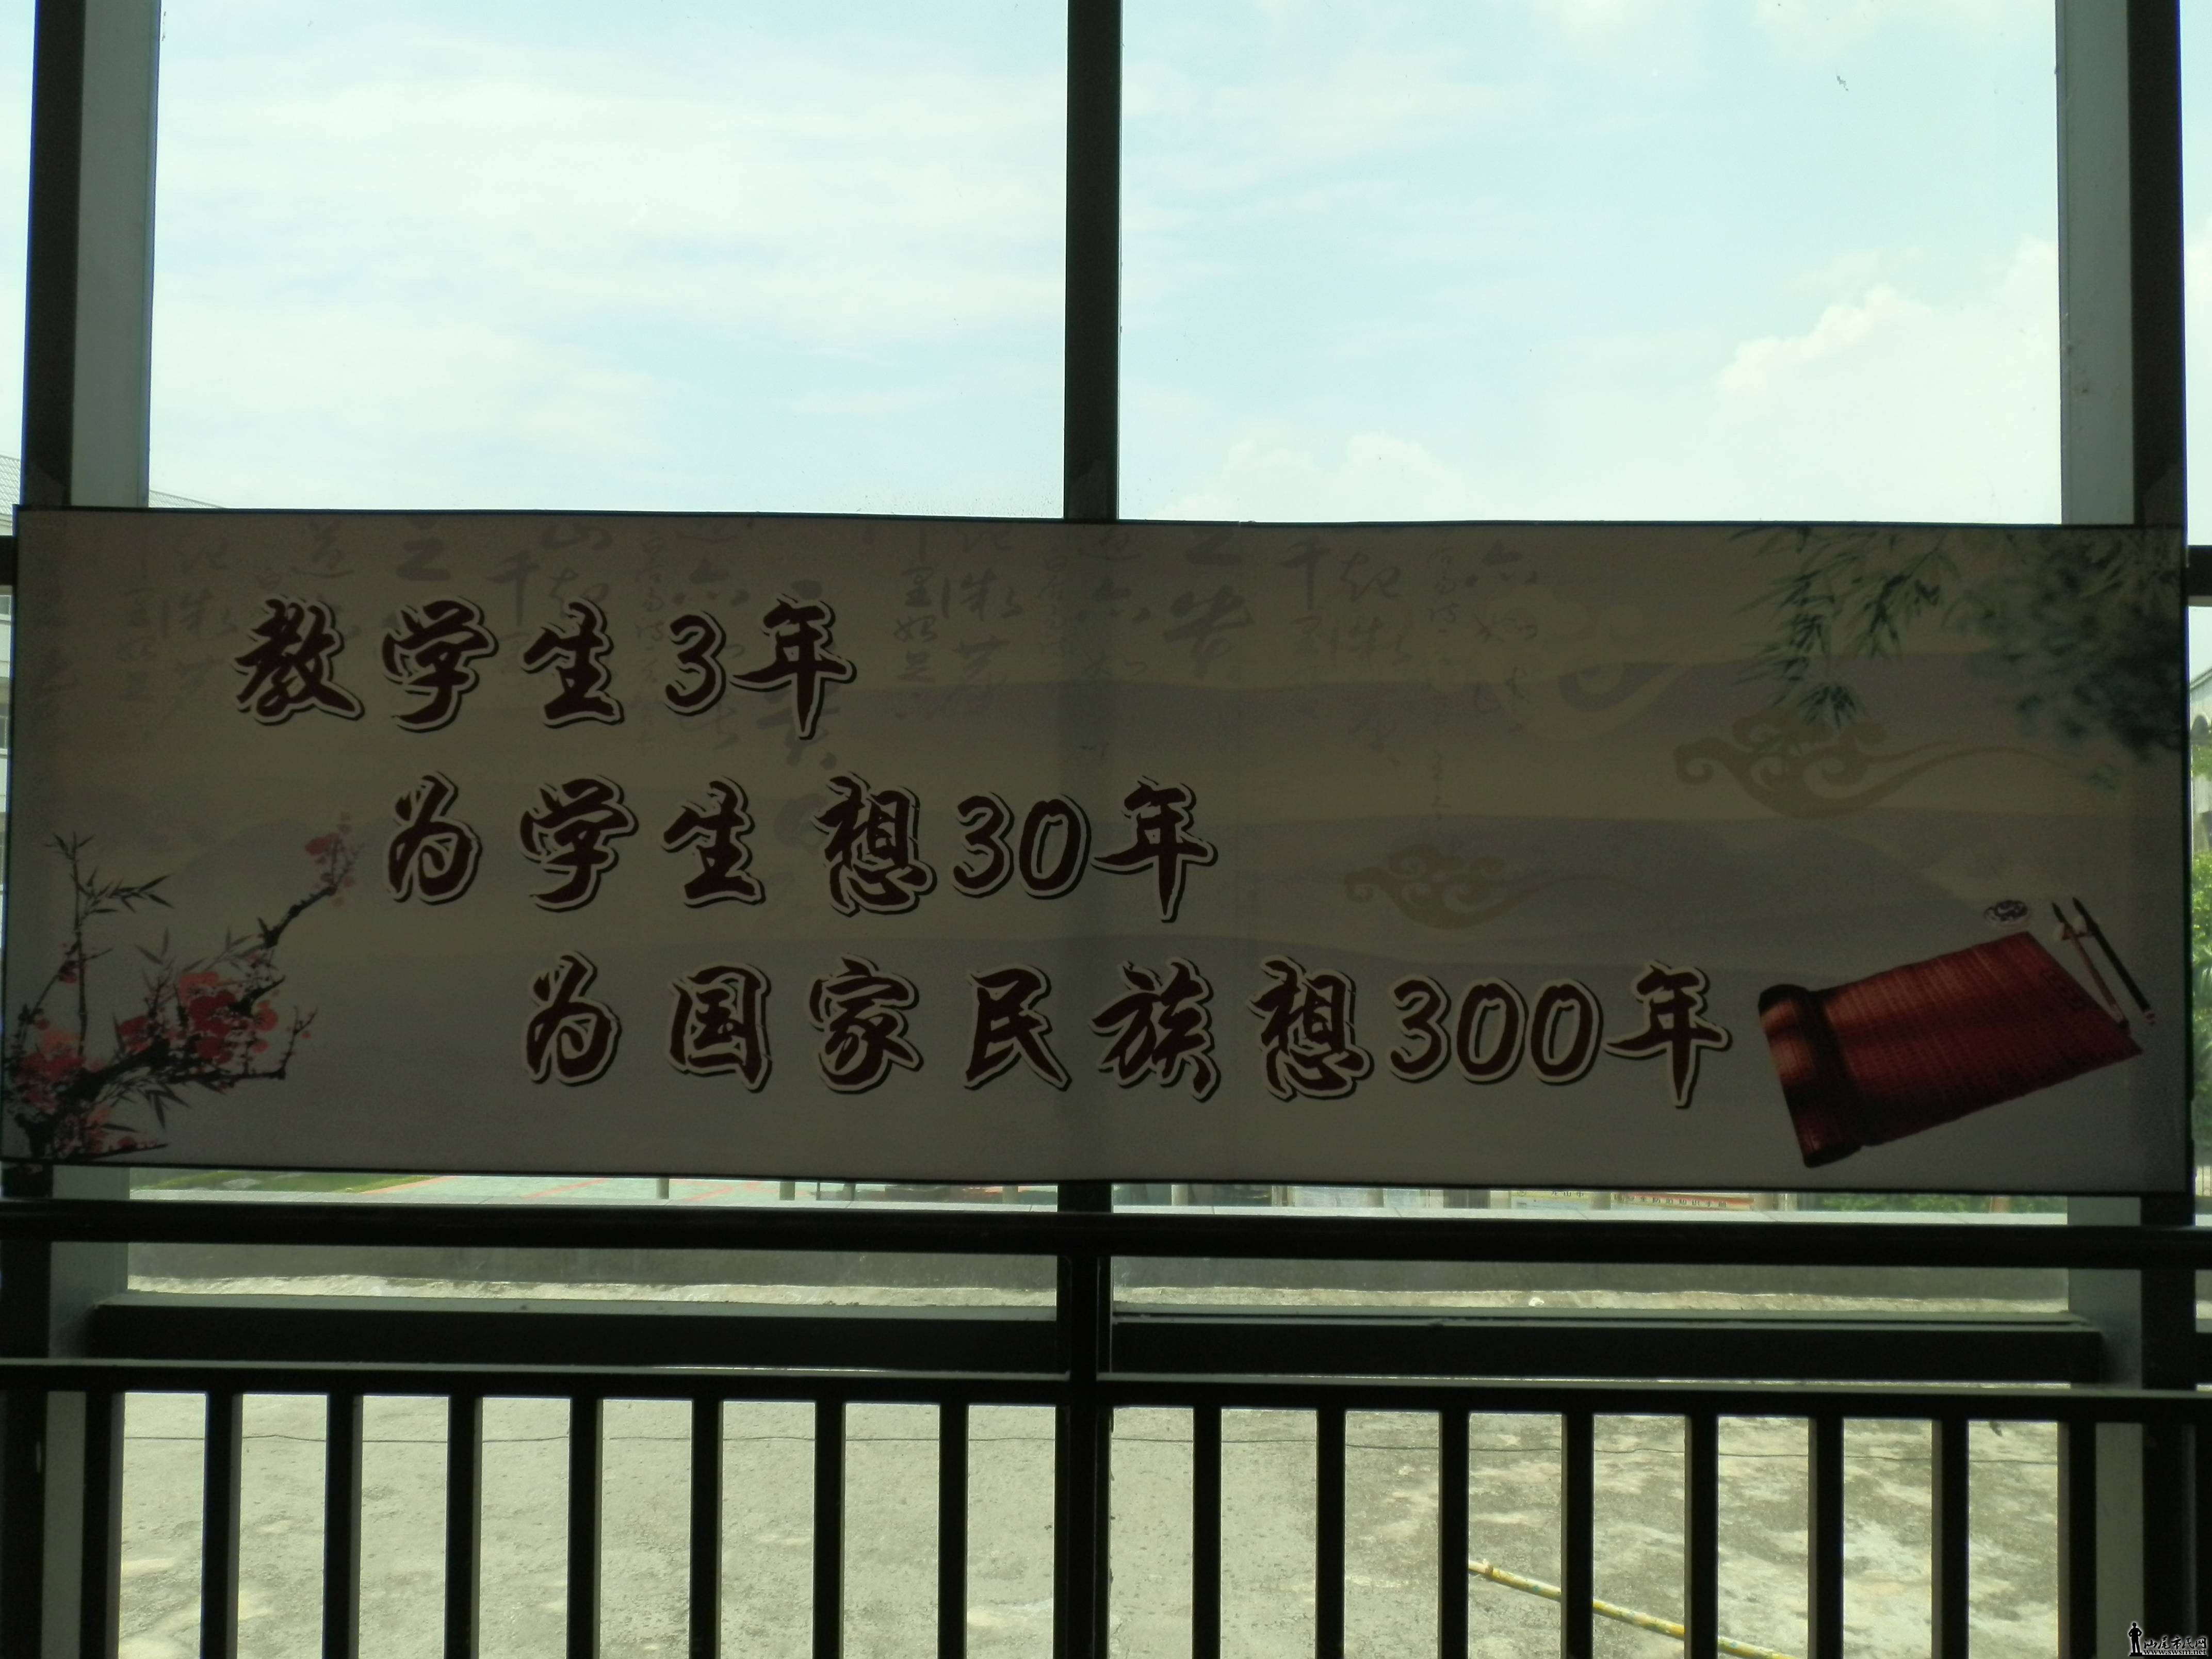 教学生3年
为学生想30年
为国家民族想300年